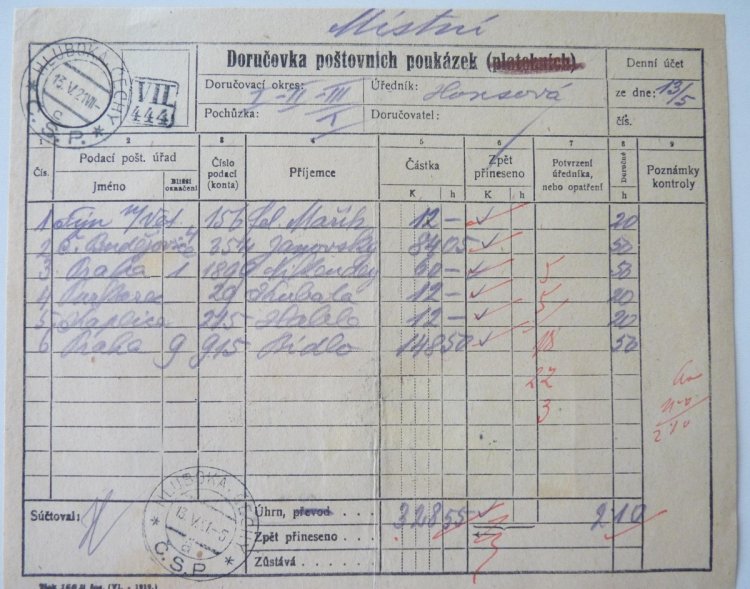 Místní
HLUBOKÁ, ČECHY
13.V.21
Č.S.P.
VII
444
Doručovka poštovních poukázek (platebních).
Denní účet
Doručovací okres: I-II-III
Úředník: Honsová
ze dne: 13/5
Pochůzka:
Doručovatel:
čís.
1 2 3 4 5 6 7 8 9
Čís.
Podací pošt. úřad
Jméno
Bližší označení
Číslo podací (konta)
Příjemce
Částka
K h
Zpět přineseno
K h
Potvrzení úředníka, nebo opatření
Doručné
h
Poznámky kontroly
1 Týn n/Vlt 156 Mařík 12 — 20
2 Č. Budějovice 4 254 Janovský 84 05 50
3 Praha 1 60 — 5 50
4 29 Kubala 12 — 5 20
5 Kaplice 215 12 — 20
6 Praha 9 915 Bidlo 148 50 50
22
3
210
Súčtoval:
HLUBOKÁ, ČECHY
13.V.21
a
Č.S.P.
Úhrn, převod . . . . 328 55 210
Zpět přineseno . . . .
Zůstává . . . . .